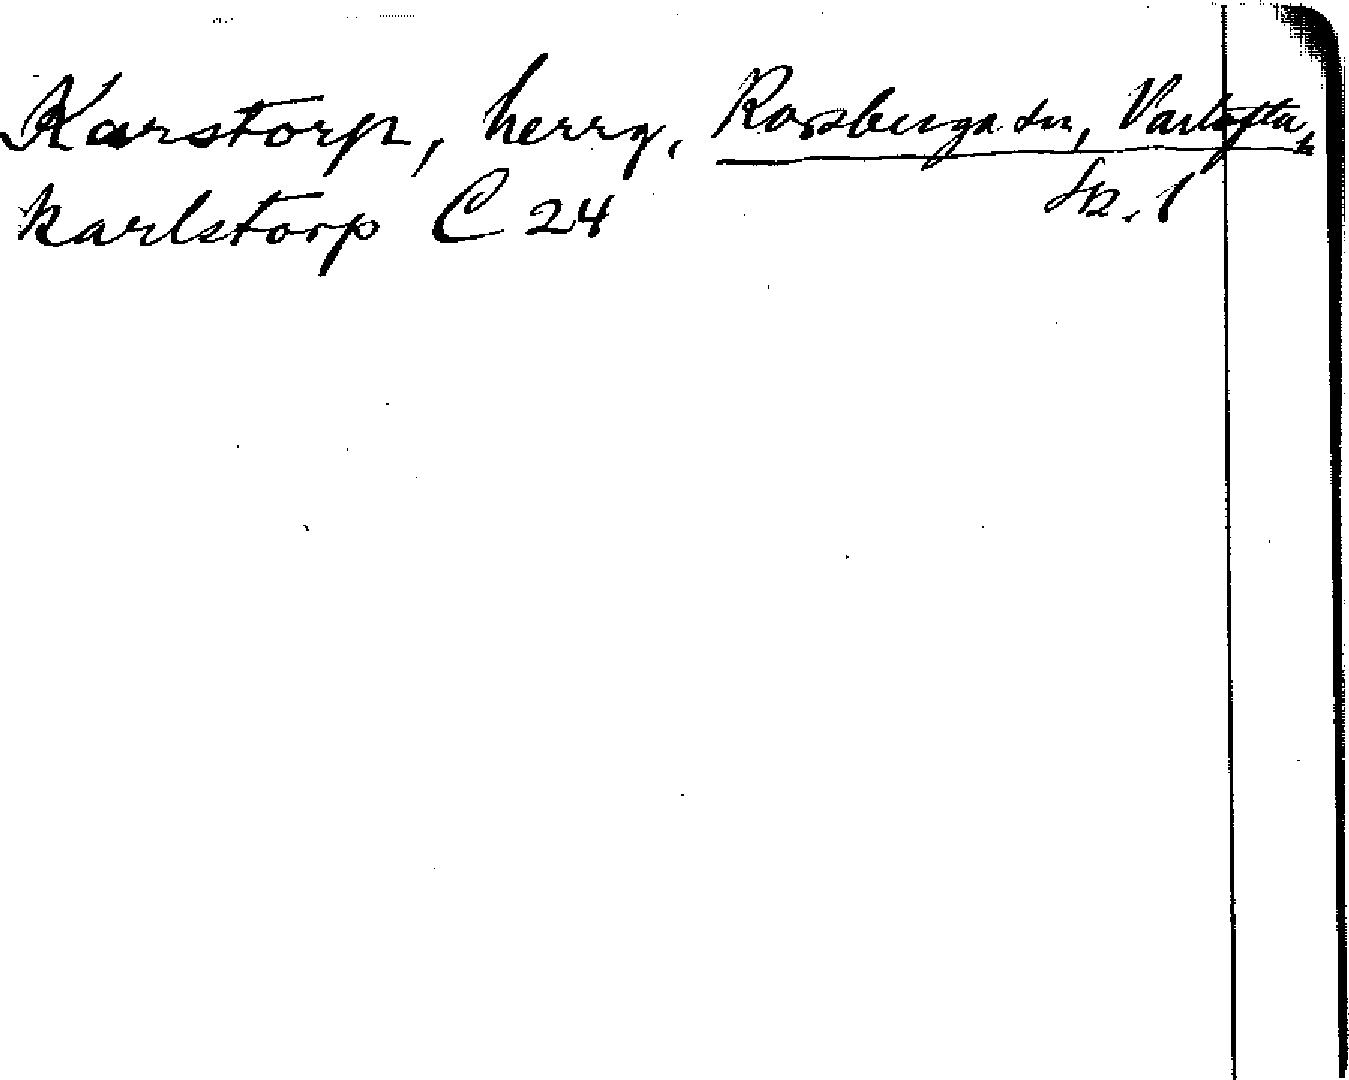 Karstorp, herrg, Rossberga sn, Vartofta h
Karlstorp C 24 Sk. l